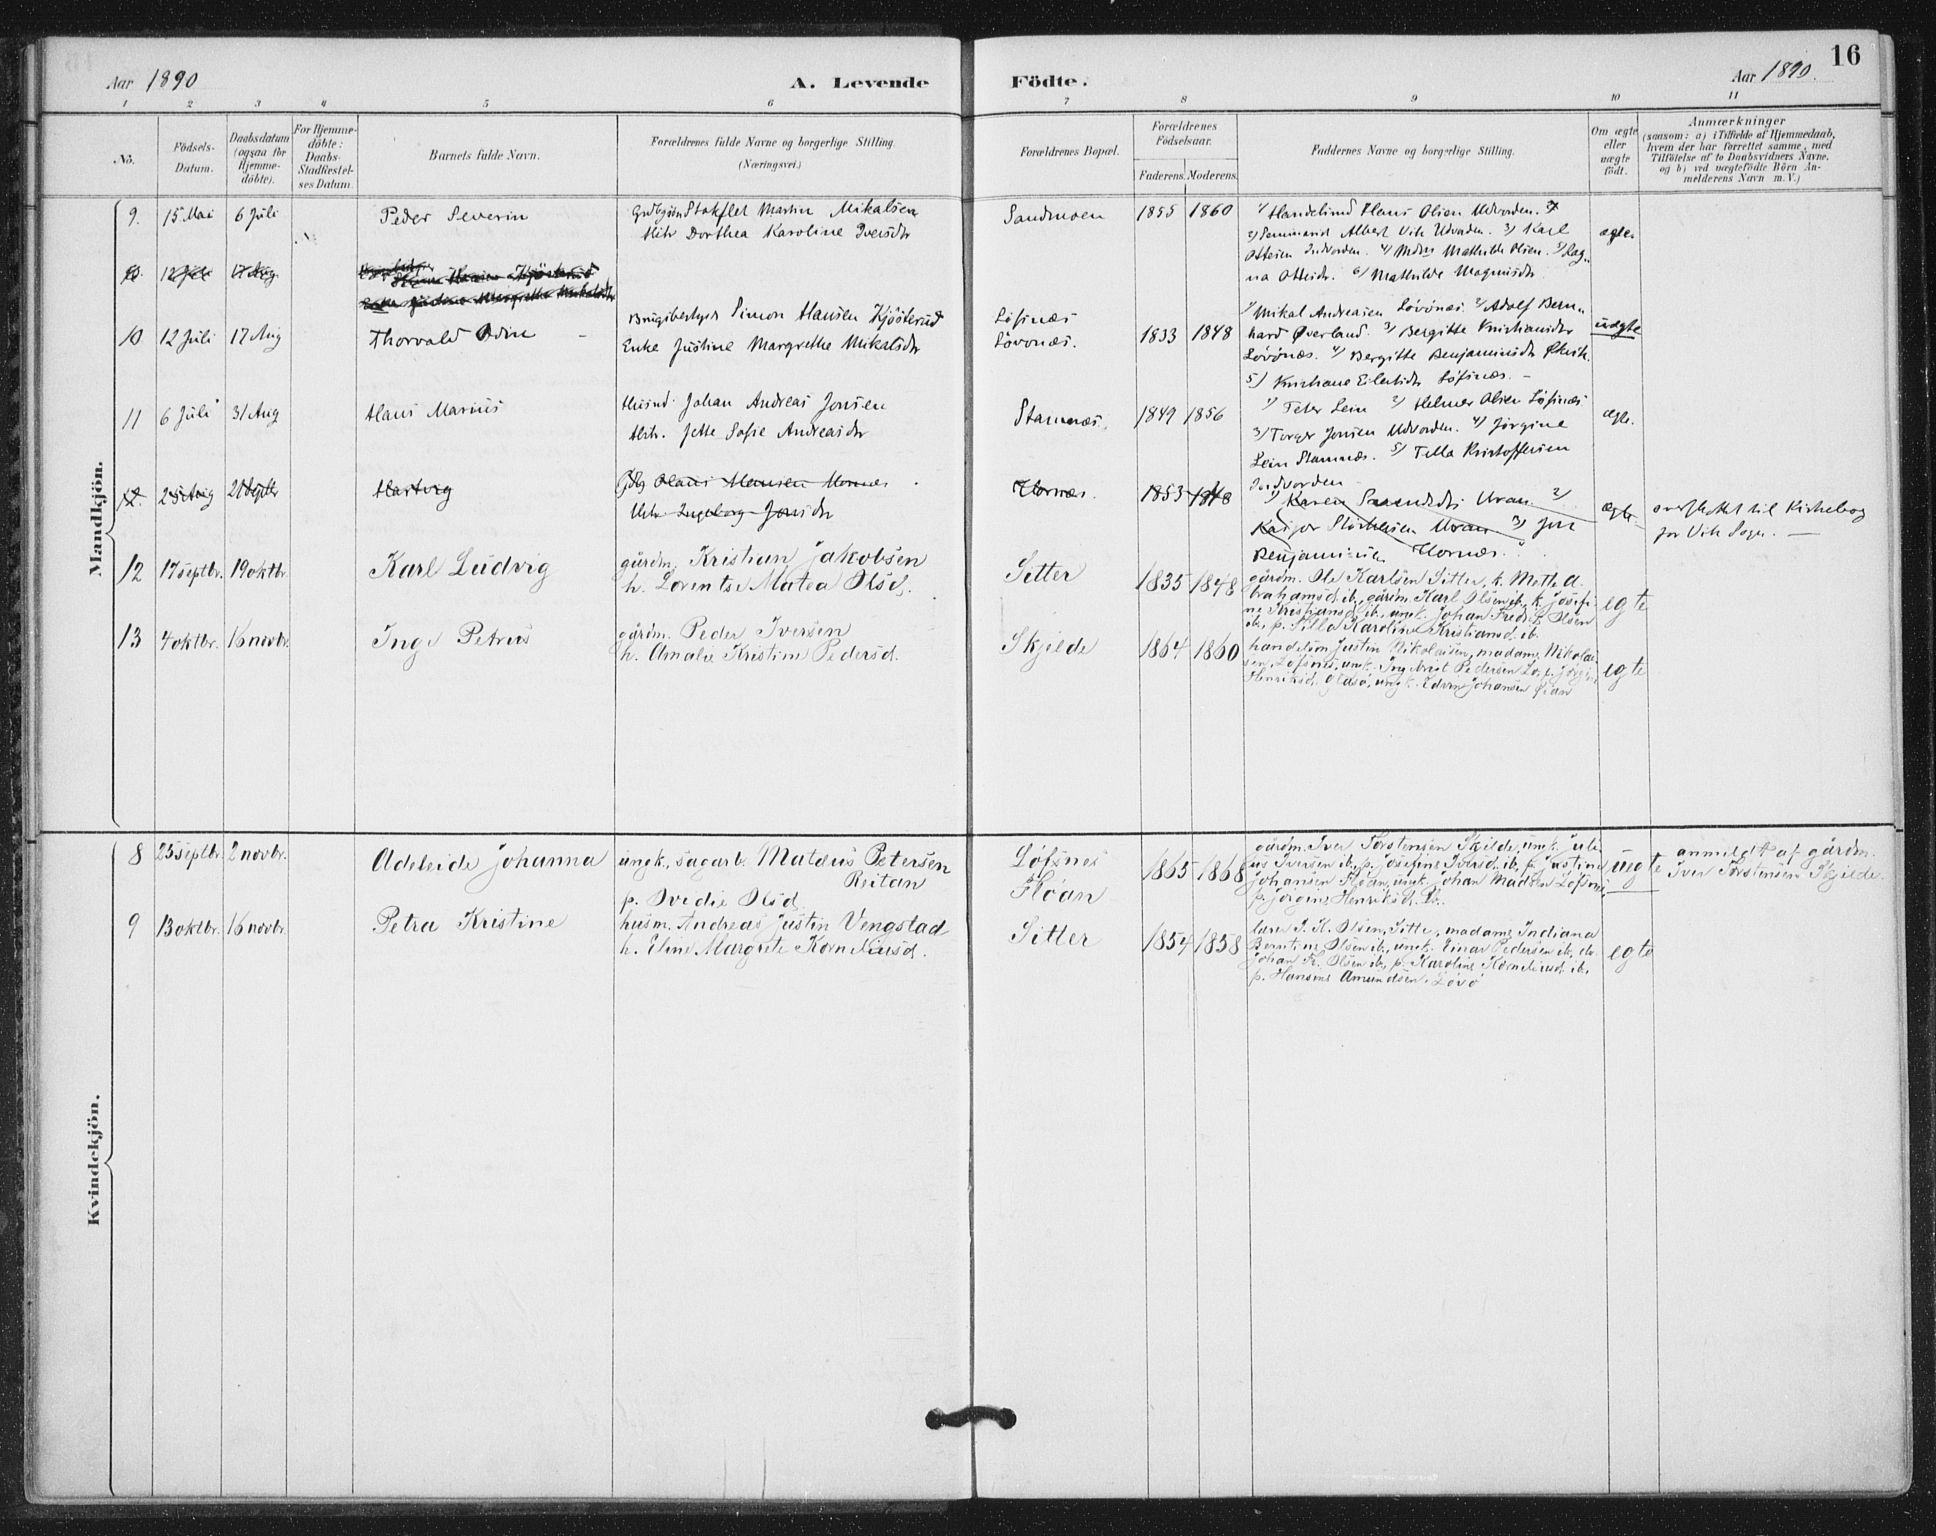 16
Aar 1890
A. Levende
Födte.
Aar 1890.
1 2 3 4 5 6 7 8 9 10 11
No.
Födsels-
Datum.
Daabsdatum
(ogsaa for
Hjemme-
döbte).
For Hjemme-
döbte:
Daabs-
Stadfæstel-
ses Datum.
Barnets fulde Navn.
Forældrenes fulde Navne og borgerlige Stilling.
(Næringsvei.)
Forældrenes Bopæl.
Forældrenes
Födselsaar.
Faderens. Moderens.
Faddernes Navne og borgerlige Stilling.
Om ægte
eller
uægte
födt.
Anmærkninger
(saasom: a) i Tilfælde af Hjemmedaab,
hvem der har forrettet samme, med
Tilföielse af to Daabsvidners Navne,
og b) ved uægtefödte Börn An-
melderens Navn m. V.)
Mandkjön.
9. 15 Mai 6 Juli Peder Severin
Martin Mikalsen
Dorthea Karoline Iversdtr
Sandmoen 1855 1860
1/ Handelsmd Hans Olsen Udvorden.
2/ Seminarist Albert Vik Udvorden. 3/ Karl
Ottesen Indvorden. 4/ Mathilde Olsen. 5/ Lag-
na Ottesdr. 6/ Mathilde Magnusdr.
ægte
10. 12 Juli 17 Aug
10 12 Juli 17 Aug Thorvald Odin
Brugsbestyrer Simon Hansen Kjösterud
Enke Justine Margrethe Mikalsdtr
Löfsnæs
Lövönæs. 1833 1848
1/ Mikal Andreasen Lövönæs. 2/ Adolf Bern-
hard Överland. 3/ Bergitte Kristiansdtr
Lövönæs. 4/ Bergitte Benjaminsdtr
5/ Kristiane Eilertsdtr Löfsnæs.
uægte
11 6 Juli 31 Aug Hans Marius
Husmd. Johan Andreas Jonsen
Hstr. Jette Sofie Andreasdtr
Stamnæs. 1849 1856
1/ Peter Lein 2/ Helmer Olsen Löfsnæs
3/ Torger Jonsen Udvorden. 4/ Jörgine
Lein Stamnæs. 5/ Tella Kristoffersen
Indvorden
ægte.
12. 25 Aug 21 Septbr Hartvig
Olaus Hansen Hornæs
Hstr. Ingeborg Jonsdtr
Hornæs. 1853 1848
1/ Karen Uran 2/
Kasper Uran 3/ Jon
Benjaminsen Hornæs.
ægte
overflyttet til Kirkebog
for Vik Sogn.
12 17 septbr. 19 oktbr. Karl Ludvig
gårdm. Kristian Jakobsen
h. Lorentse Matea Olsd.
Sitter 1835 1848
gårdm. Ole Karlsen Sitter, k. Mette A-
brahamsd. ib., gårdm. Karl Olsen ib., k. Josefi-
ne Kristiansd. ib., ungk. Johan Fredrik Olsen
ib., p. Tilla Karoline Kristiansd. ib.
egte
13 4 oktbr. 16 novbr. Inge Petrus
gårdm. Peder Iversen
h. Amalie Kristine Pedersd.
Skjelde 1864 1860
handelsm. Justin Nikolaisen, madame Nikolai-
sen, Löfsnes, ungk. Ingebrigt Pedersen
Henriksd. ungk. Edvin Johansen Öian
egte
Kvindekjön.
8 25 septbr. 2 novbr. Adeleide Johanna
ungk., sagarb. Mataus Petersen
Reitan
p. Ovedie Olsd.
Löfsnes
Flöan 1865 1868
gårdm. Iver Torstensen Skjelde, ungk. Juli-
us Iversen ib., p. Josefine Iversd. ib., p. Justine
Johansen Flöan, ungk. Johan Madsen Löfsnes,
p. Jörgine Henriksd. ib.
uegte
anmeldt af gårdm.
Iver Torstensen Skjelde.
9 13 oktbr. 16 novbr. Petra Kristine
husm. Andreas Justin Vengstad
h. Eline Margrete Korneliusd.
Sitter 1854 1858
lærer J. K. Olsen, Sitter, madame Indiana
Berntine Olsen ib., ungk. Einar Pedersen ib., do.
Johan Fr. Olsen ib., p. Karoline Korneliusd. ib.,
p. Hansine Amundsen, Lövö
egte